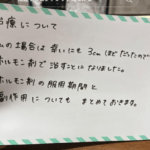 治療について
の場合は 幸いにも 3cm ほどだったので
ホルモン剤で 治すことになりました。
ホルモン剤の 服用期間と
副作用についても まとめておきます。